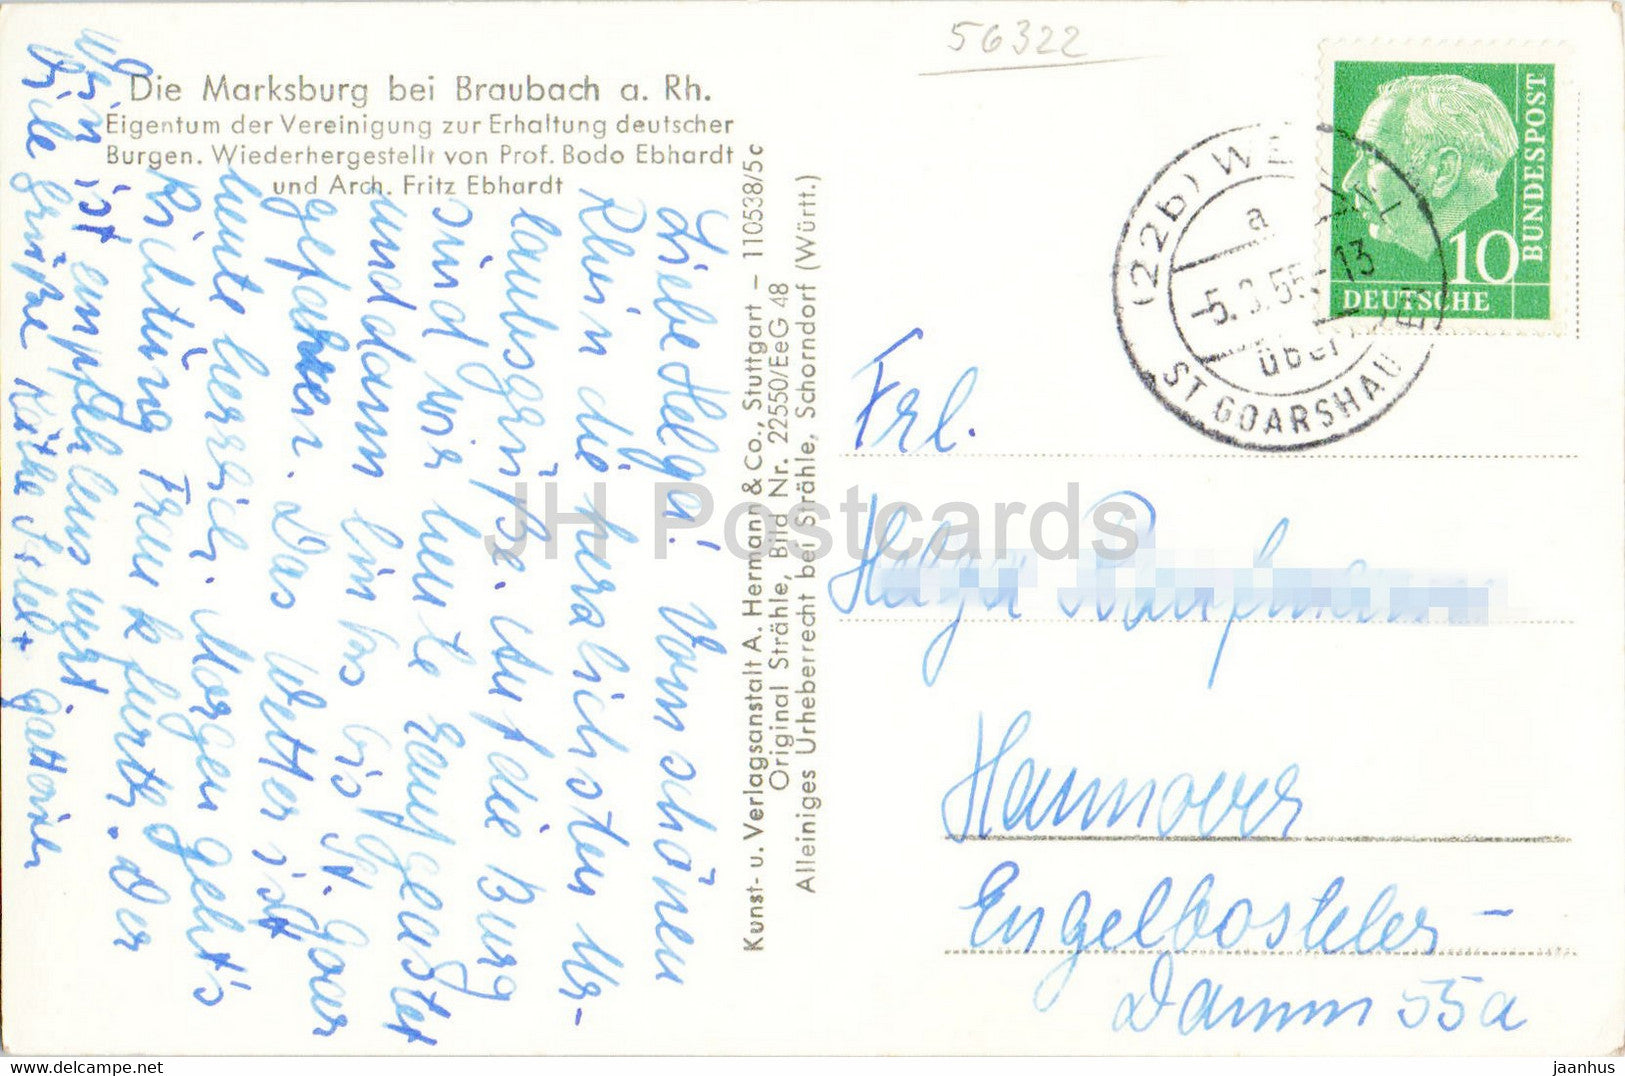 56322
Die Marksburg bei Braubach a. Rh.
Eigentum der Vereinigung zur Erhaltung deutscher
Burgen. Wiederhergestellt von Prof. Bodo Ebhardt
und Arch. Fritz Ebhardt
Liebe Helga! Vom schönen
Rhein die herzlichsten Ur-
laubsgrüße. Auf die Burg
sind wir heute raufgelastet
und dann bis St. Goar
gefahren. Das Wetter ist
heute herrlich. Morgen geht's
Richtung Frankfurt. Der
Wein ist empfehlenswert.
Viele Grüße Käthe
Kunst- u. Verlagsanstalt A. Hermann & Co., Stuttgart – 110538/5c
Original Strähle, Bild Nr. 22550/EeG 48
Alleiniges Urheberrecht bei Strähle, Schorndorf (Württ.)
DEUTSCHE
BUNDESPOST
10
(22b) WE
a
5. 55-13
über
ST GOARSHAU
Frl.
Helga
Hannover
Engelbosteler-
Damm 55a
JH Postcards
jaanhus